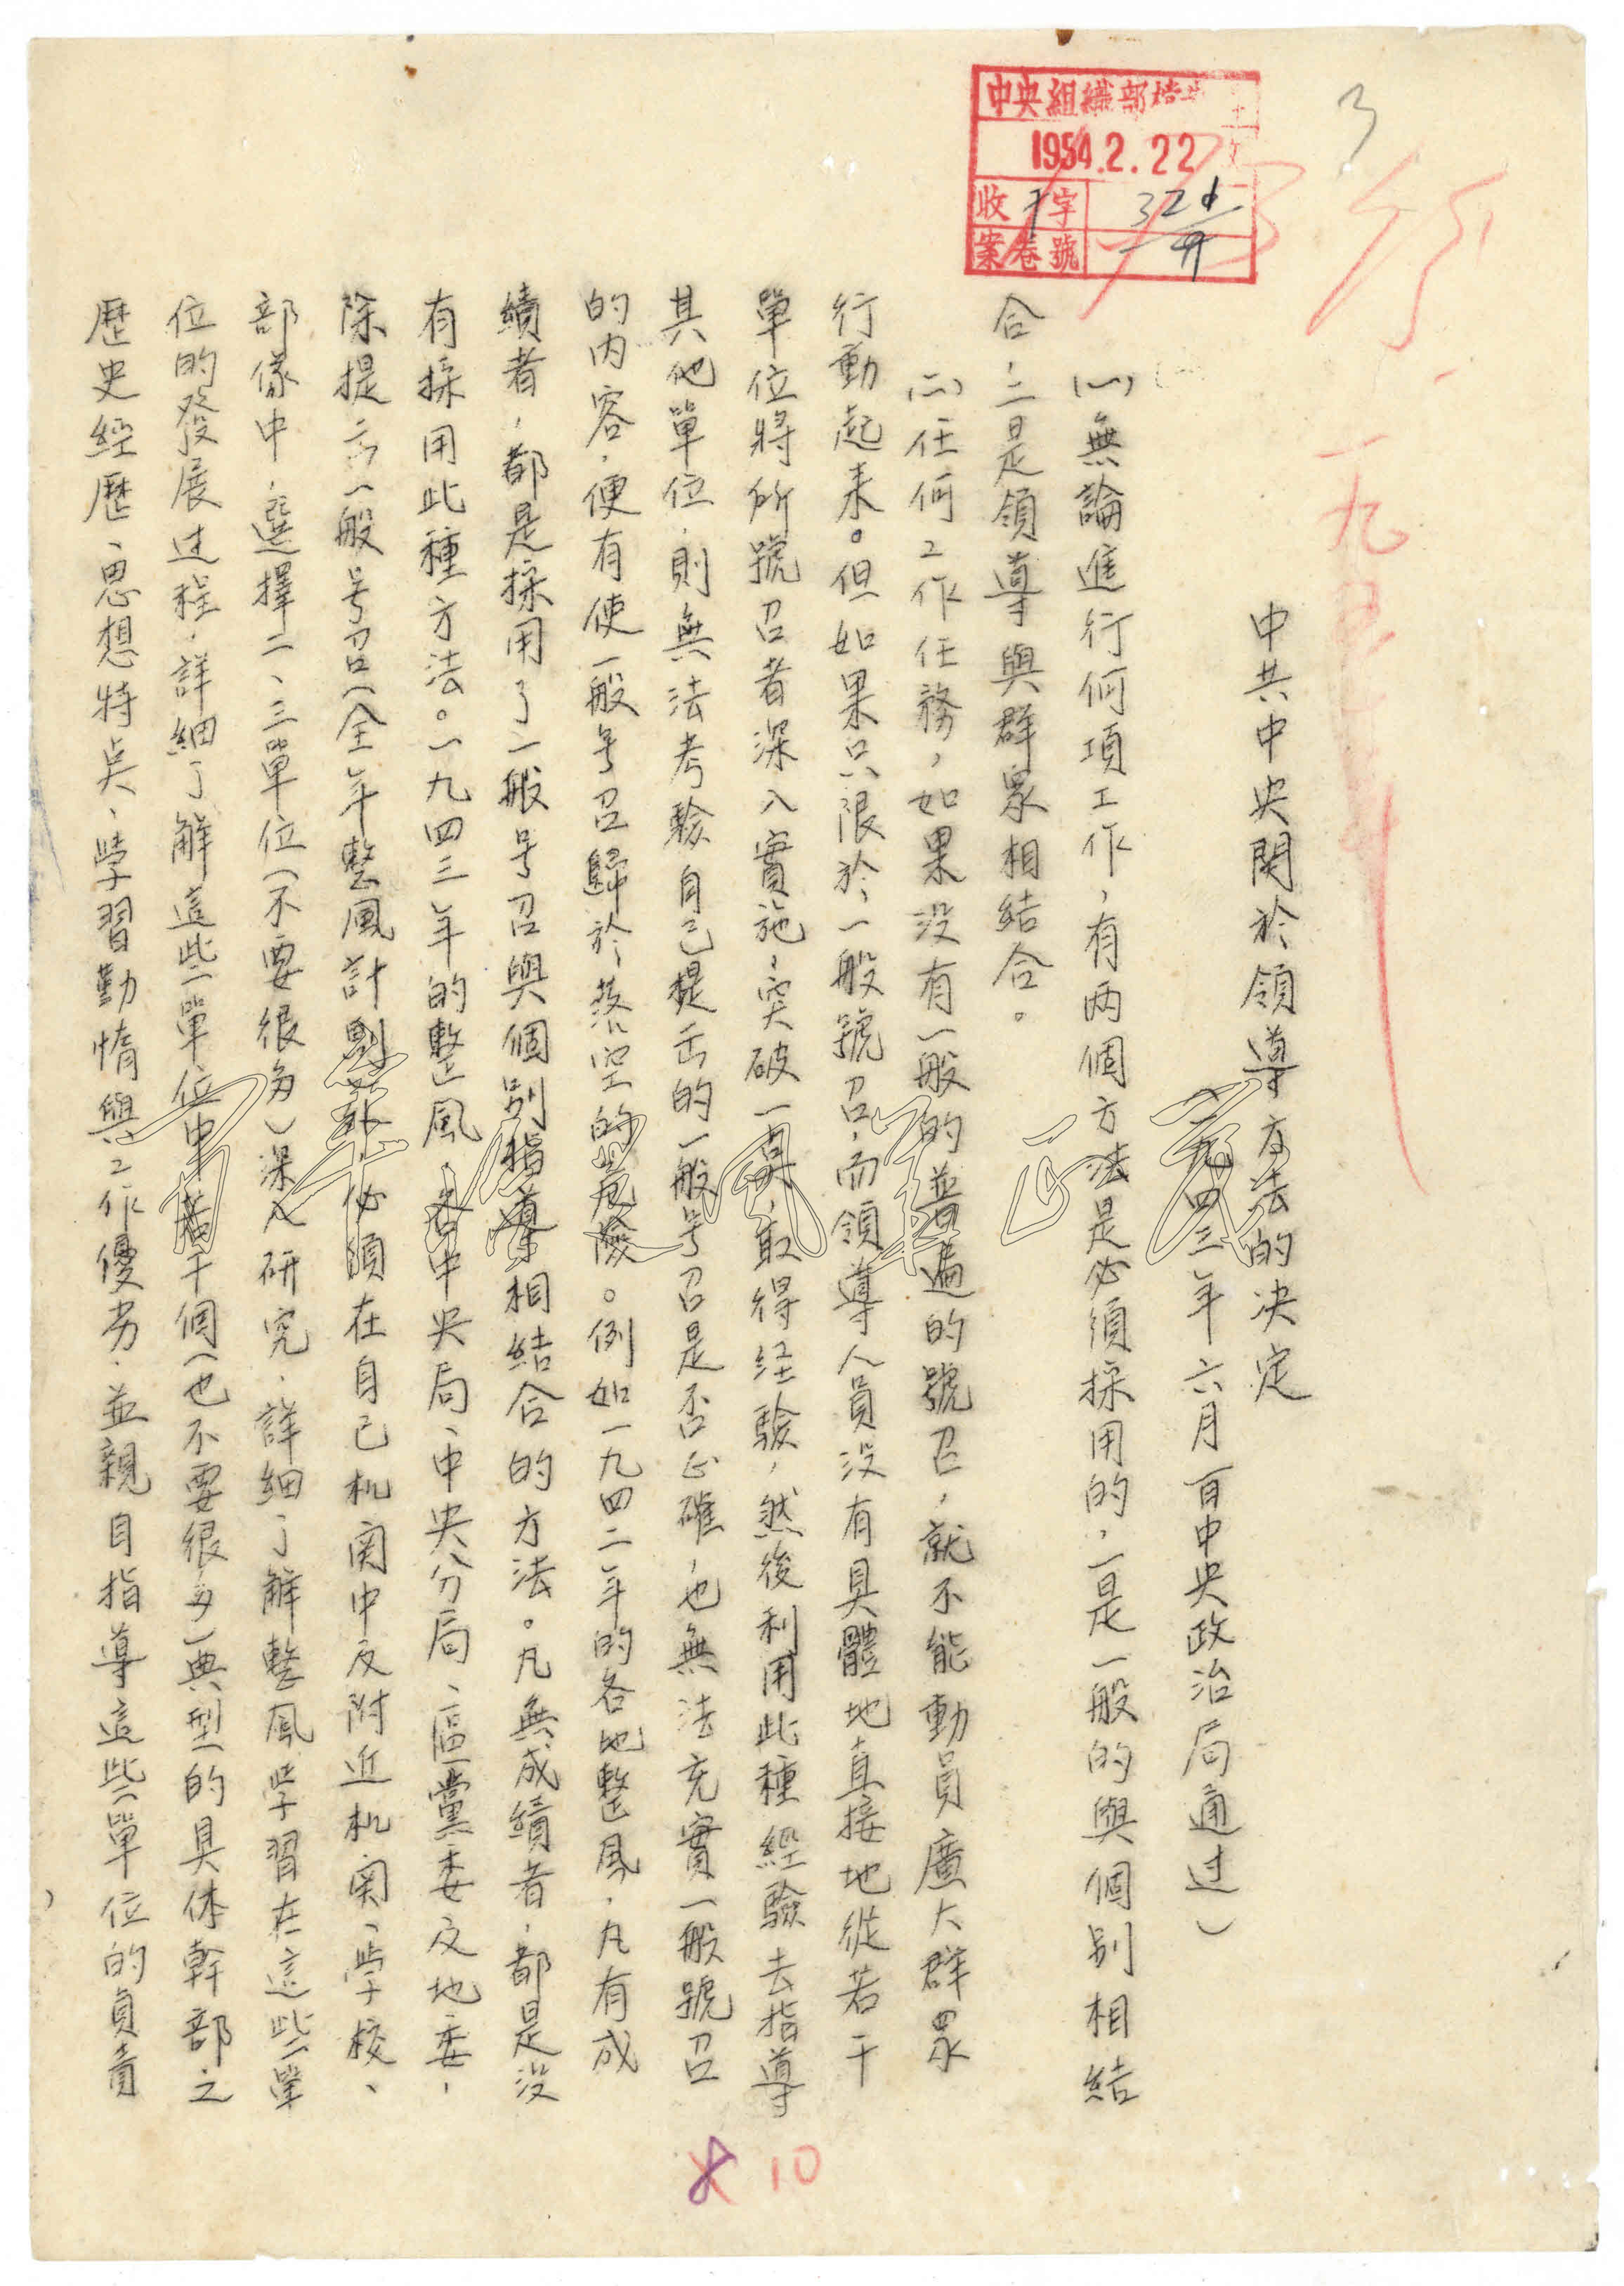 中央組織部
1954.2.22
收 字
案卷號
3
中共中央関於領導方法的决定
年六月一日中央政治局通过）
（一）無論進行何項工作，有两個方法是必須採用的，一是一般的與個别相結
合，二是領導與群眾相結合。
（二）任何工作任務，如果没有一般的普遍的號召，就不能動員廣大群眾
行動起来。但如果只限於一般號召，而領導人員没有具體地直接地從若干
單位將所號召者深入實施，突破一点，取得经驗，然後利用此種經驗去指導
其他單位，則無法考驗自己提出的一般号召是否正確，也無法充實一般號召
的内容，便有使一般号召歸於落空的危險。例如一九四二年的各地整風，凡有成
績者，都是採用了一般号召與個别指導相結合的方法。凡無成績者，都是没
有採用此種方法。一九四三年的整風，各中央局、中央分局、區黨委及地委，
除提出一般号召（全年整風計劃）外，必須在自己机関中及附近机関、学校、
部隊中，選擇二、三單位（不要很多）深入研究，詳細了解整風学習在這些單
位的發展过程，詳細了解這些單位中若干個（也不要很多）典型的具体幹部之
歷史經歷、思想特点、学習勤惰與工作優劣，並親自指導這些單位的負責
10